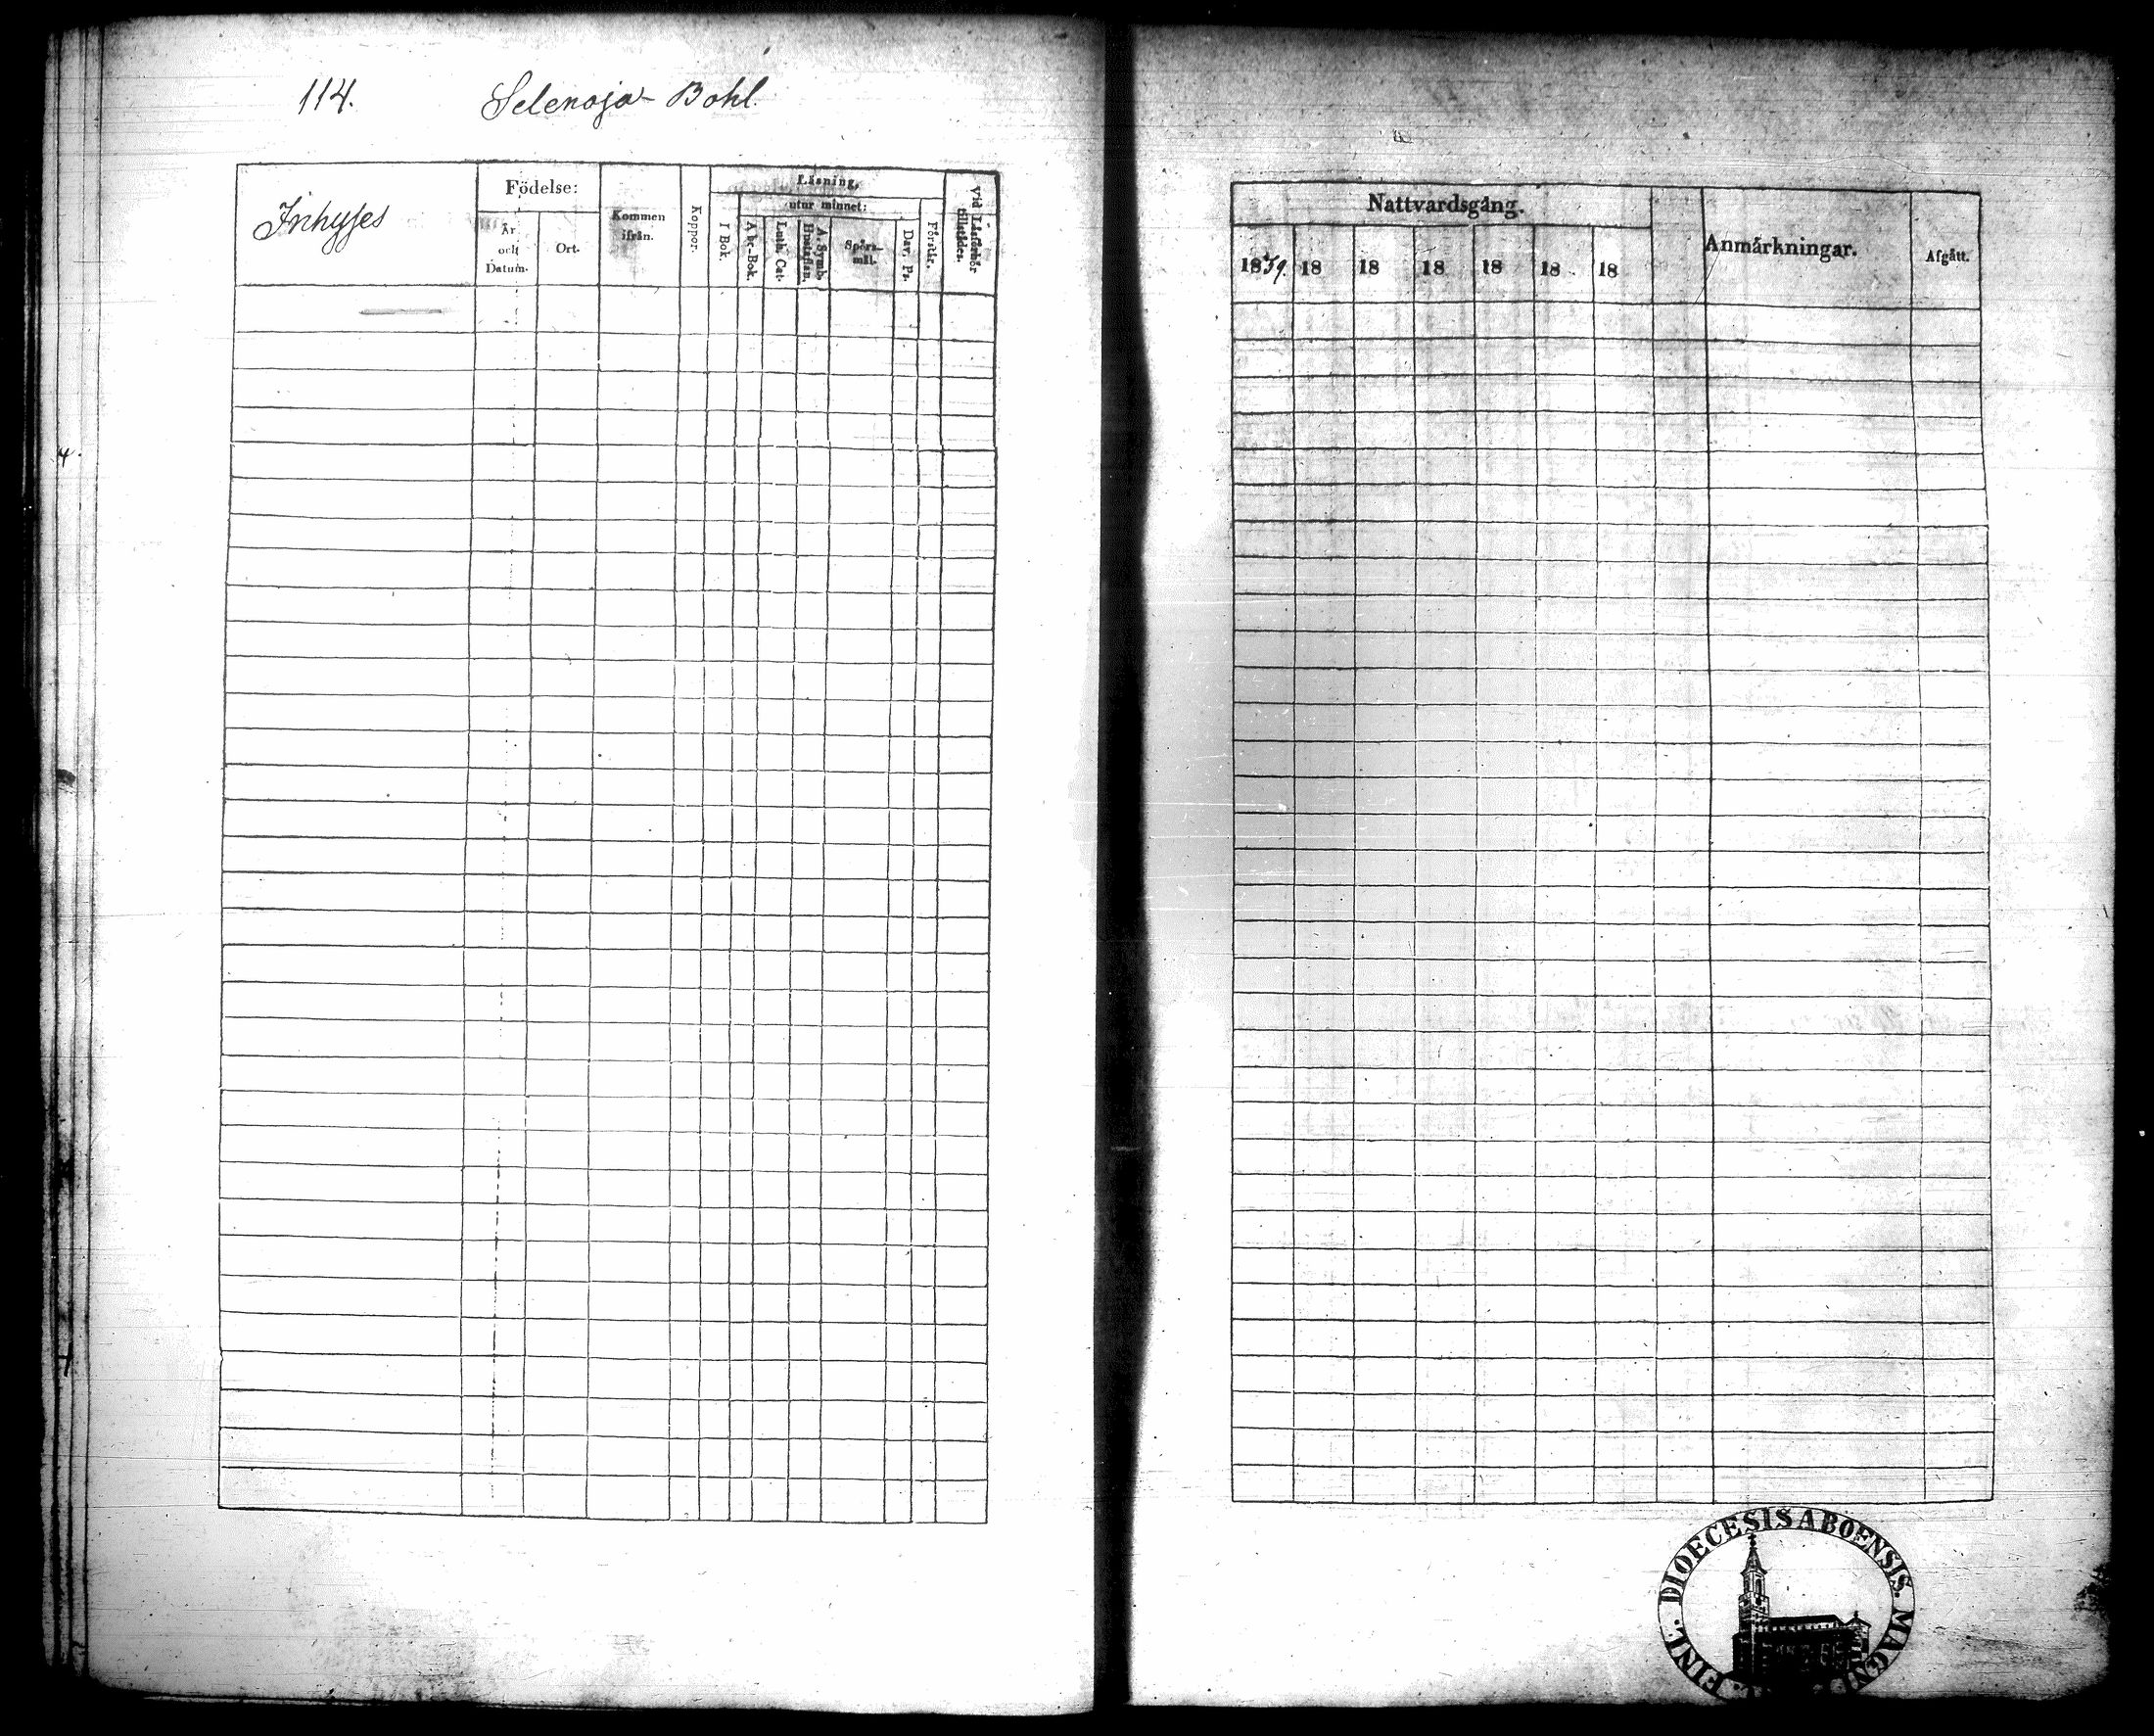 114. Selenoja Bohl.
Inhyses
Födelse:
År
och
Datum.
Ort.
Kommen
ifrån.
Koppor.
Läsning,
utur minnet:
I Bok.
Abc-Bok.
Luth. Cat.
A. Symb.
Hustaflan.
Spörs-
mål.
Dav. Ps.
Förstår.
Vid Läsförhör
tillstädes.
Nattvardsgång.
1859. 18 18 18 18 18 18
Anmärkningar.
Afgått.
FINL. DIOECESIS ABOENSIS. MAGN